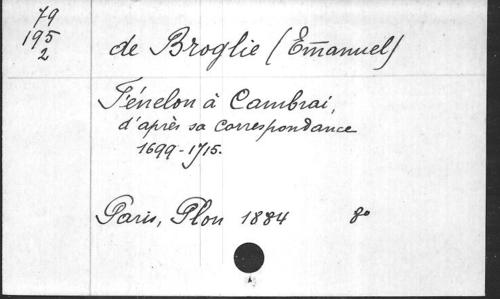 79
195
2
de Broglie (Emanuel)
Fénelon à Cambrai,
d'après sa correspondance
1699-1715.
Paris, Plon 1884 8°